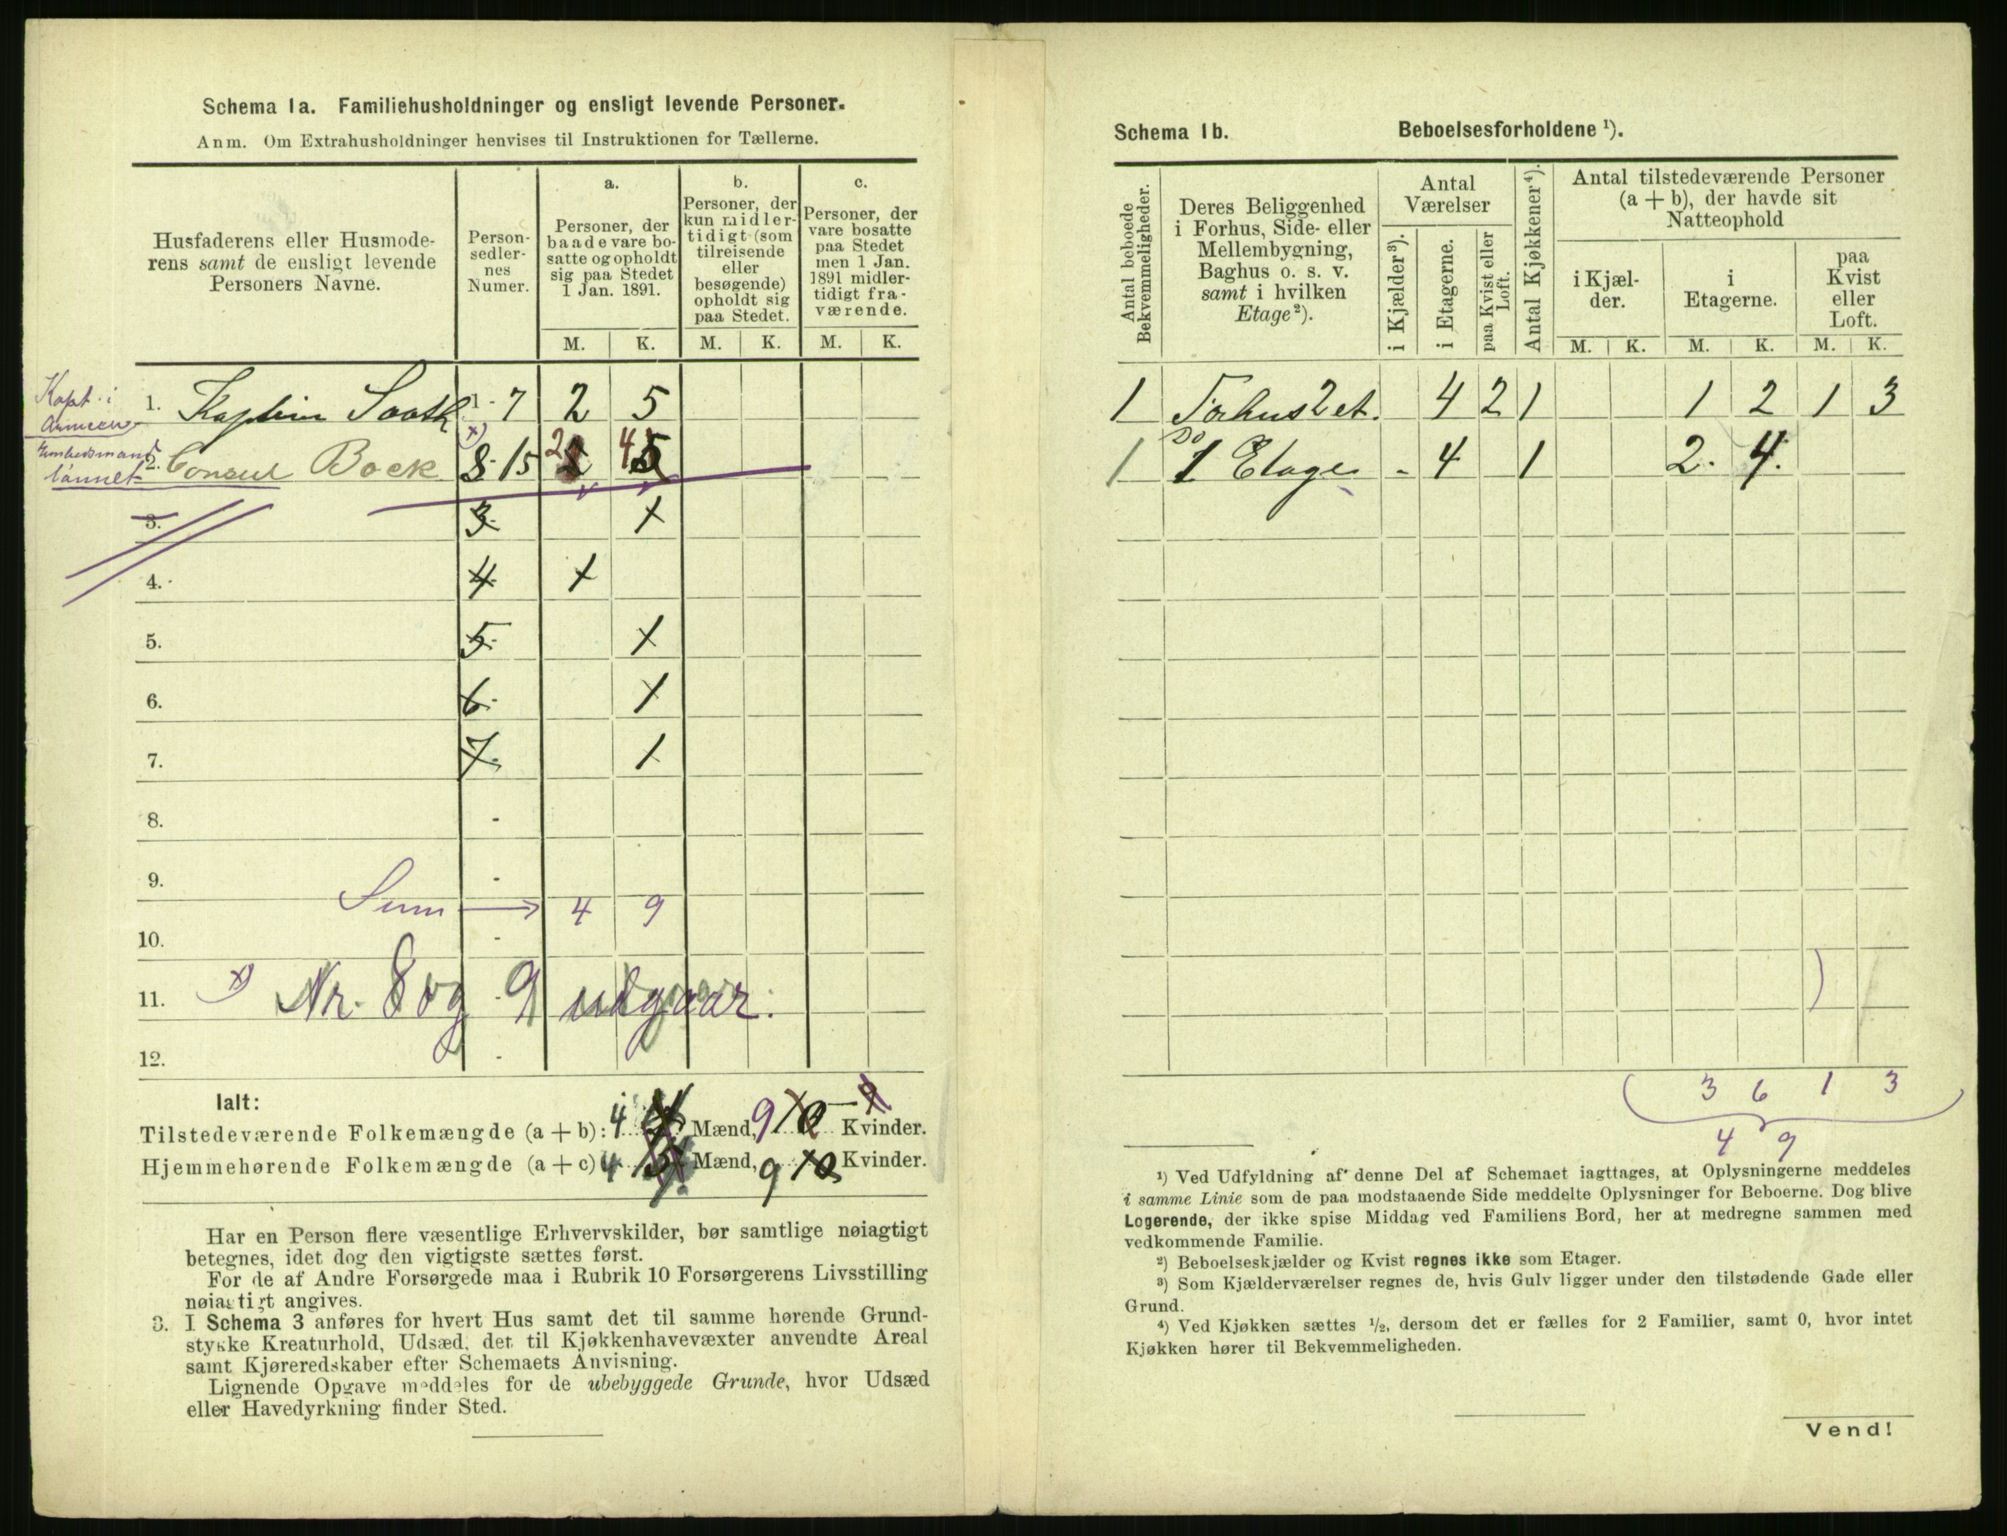 Schema 1a. Familiehusholdninger og ensligt levende Personer.
Anm. Om Extrahusholdninger henvises til Instruktionen for Tællerne.
Husfaderens eller Husmode-
rens samt de ensligt levende
Personers Navne.
Person-
sedler-
nes
Numer.
a.
Personer, der
baade vare bo-
satte og opholdt
sig paa Stedet
1 Jan. 1891.
b.
Personer, der
kun midler-
tidigt (som
tilreisende
eller
besøgende)
opholdt sig
paa Stedet.
c.
Personer, der
vare bosatte
paa Stedet
men 1 Jan.
1891 midler-
tidigt fra-
værende.
M. K. M. K. M. K.
Kapt. i
Armeen
1. Kaptein Sooth 1-7 2 5
Embedsmand
lønnet
2. Consul Bock 8-15 2 4
3. 3 x
4. 4 x
5. 5 x
6. 6 x
7. 7 1
8.
9.
Sum → 4 9
10.
11. x) Nr. 8 og 9 udgaar.
12.
Ialt:
Tilstedeværende Folkemængde (a + b): 4 Mænd, 9 Kvinder.
Hjemmehørende Folkemængde (a + c) 4 Mænd, 9 Kvinder.
Har en Person flere væsentlige Erhvervskilder, bør samtlige nøiagtigt
betegnes, idet dog den vigtigste sættes først.
For de af Andre Forsørgede maa i Rubrik 10 Forsørgerens Livsstilling
nøiagtigt angives.
3. I Schema 3 anføres for hvert Hus samt det til samme hørende Grund-
stykke Kreaturhold, Udsæd, det til Kjøkkenhavevæxter anvendte Areal
samt Kjøreredskaber efter Schemaets Anvisning.
Lignende Opgave meddeles for de ubebyggede Grunde, hvor Udsæd
eller Havedyrkning finder Sted.
Schema 1b. Beboelsesforholdene ¹).
Antal beboede
Bekvemmeligheder.
Deres Beliggenhed
i Forhus, Side- eller
Mellembygning,
Baghus o. s. v.
samt i hvilken
Etage²).
Antal
Værelser
i Kjælder³).
i Etagerne.
paa Kvist eller
Loft.
Antal Kjøkkener⁴).
Antal tilstedeværende Personer
(a + b), der havde sit
Natteophold
i Kjæl-
der.
i
Etagerne.
paa
Kvist
eller
Loft.
M. K. M. K. M. K.
1 Forhus 2 et. 4 2 1 1 2 1 3
1 Do 1 Etage - 4 1 2. 4.
3 6 1 3
4 9
¹) Ved Udfyldning af denne Del af Schemaet iagttages, at Oplysningerne meddeles
i samme Linie som de paa modstaaende Side meddelte Oplysninger for Beboerne. Dog blive
Logerende, der ikke spise Middag ved Familiens Bord, her at medregne sammen med
vedkommende Familie.
²) Beboelseskjælder og Kvist regnes ikke som Etager.
³) Som Kjælderværelser regnes de, hvis Gulv ligger under den tilstødende Gade eller
Grund.
⁴) Ved Kjøkken sættes ½, dersom det er fælles for 2 Familier, samt 0, hvor intet
Kjøkken hører til Bekvemmeligheden.
Vend!